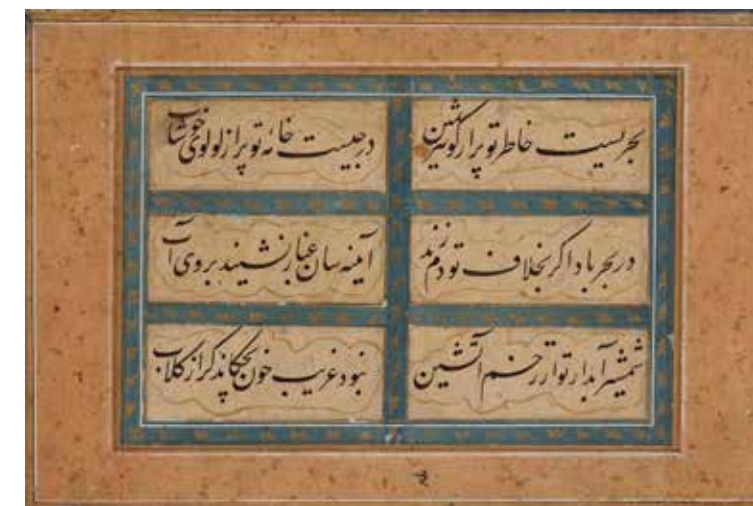 بحریست خاطر تو پر از گوهر ثمین
درجیست خانه تو پر از لولوی خوشاب
در بحر باد اگر بخلاف تو دم زند
آیینه سان غبار نشیند بروی آب
شمشیر آبدار تو از زخم آتشین
نبود غریب خون بچکاند گر از کلاب